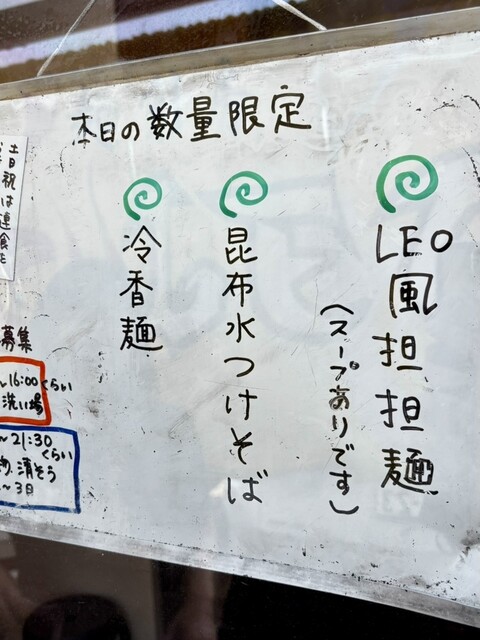 本日の数量限定
LEO風担担麺
(スープありです)
昆布水つけそば
冷香麺
土日祝は連食を
募集
~16:00くらい
洗い場
~21:30
くらい
清そう
~3日